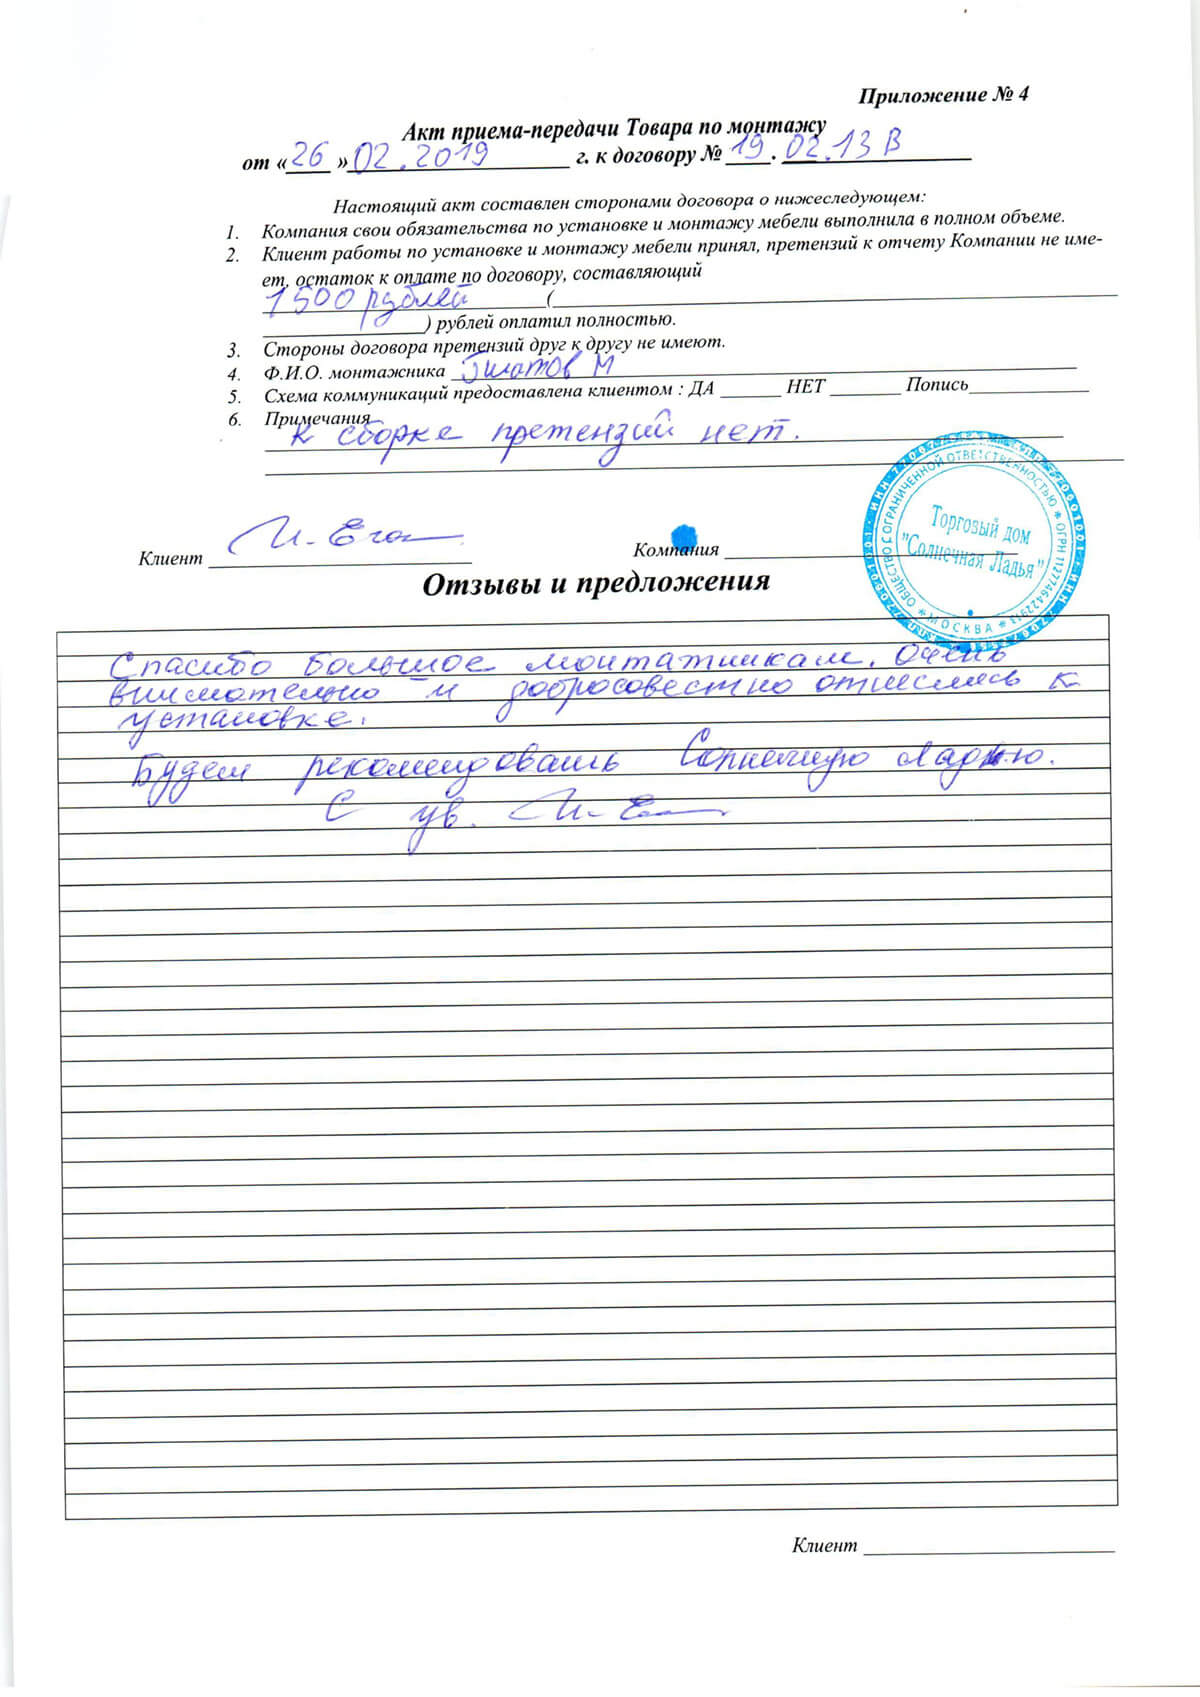 Приложение № 4
Акт приема-передачи Товара по монтажу
от «26» 02.2019 г. к договору № 19.02.13 В
Настоящий акт составлен сторонами договора о нижеследующем:
1. Компания свои обязательства по установке и монтажу мебели выполнила в полном объеме.
2. Клиент работы по установке и монтажу мебели принял, претензий к отчету Компании не име-
ет, остаток к оплате по договору, составляющий
1500 рублей (
) рублей оплатил полностью.
3. Стороны договора претензий друг к другу не имеют.
4. Ф.И.О. монтажника М
5. Схема коммуникаций предоставлена клиентом : ДА ______ НЕТ _______ Попись____________
6. Примечания
К сборке претензий нет.
ОБЩЕСТВО С ОГРАНИЧЕННОЙ ОТВЕТСТВЕННОСТЬЮ
Торговый дом
"Солнечная Ладья"
МОСКВА
Клиент
Компания
Отзывы и предложения
Спасибо большое монтажникам. Очень
внимательно и добросовестно отнеслись к
установке.
Будем рекомендовать Солнечную Ладью.
С ув.
Клиент